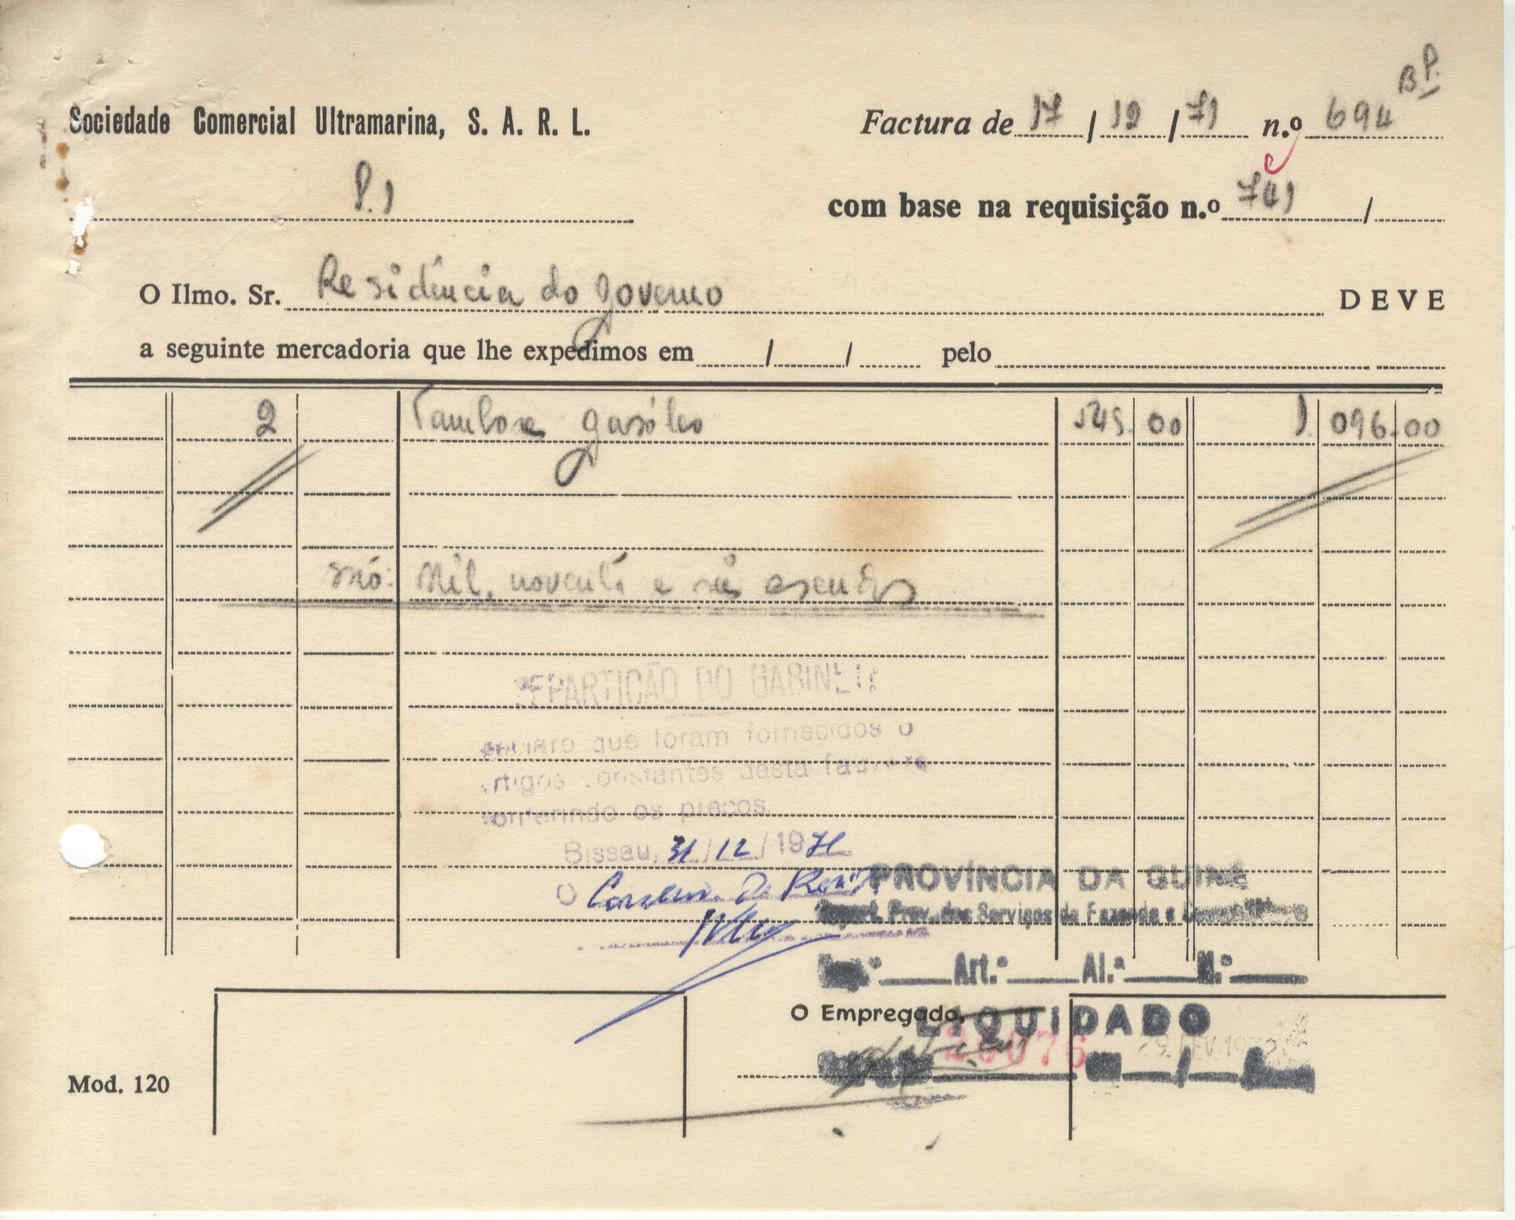 BP.
Sociedade Comercial Ultramarina, S. A. R. L.
Factura de 17 / 12 / 71 n.º 694
P.1
com base na requisição n.º 741 /
O Ilmo. Sr. Residência do governo DEVE
a seguinte mercadoria que lhe expedimos em / / pelo
2 Tambores gasóleo 548.00 1.096.00
São: Mil, noventa e seis escudos
REPARTIÇÃO DO GABINETE
que foram fornecidos o
artigos constantes desta factura
conferindo os preços
Bissau, 31/12/1971
O
PROVÍNCIA DA GUINÉ
Repart. Prov. dos Serviços de Fazenda e
Cap.º Art.º Al.ª N.º
O Empregado,
LIQUIDADO
28076
9 FEV. 1972
Mod. 120